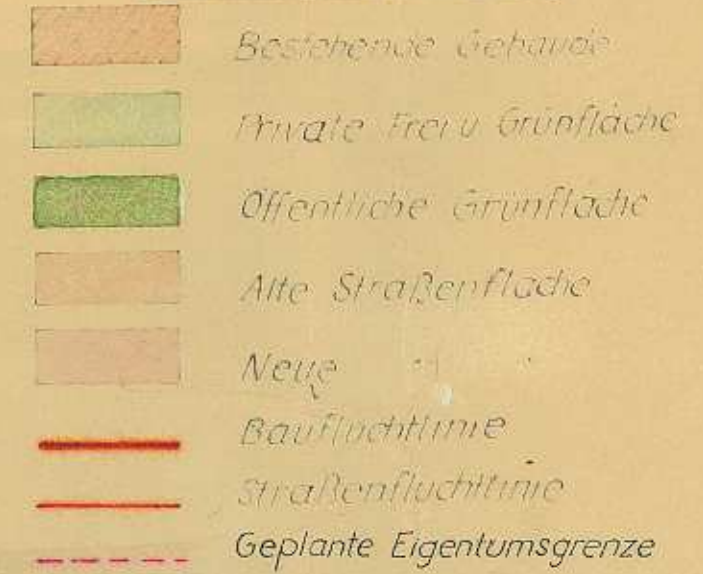 Bestehende Gebäude
Private Frei u Grünfläche
Öffentliche Grünfläche
Alte Straßenfläche
Neue "
Baufluchtlinie
Straßenfluchtlinie
Geplante Eigentumsgrenze